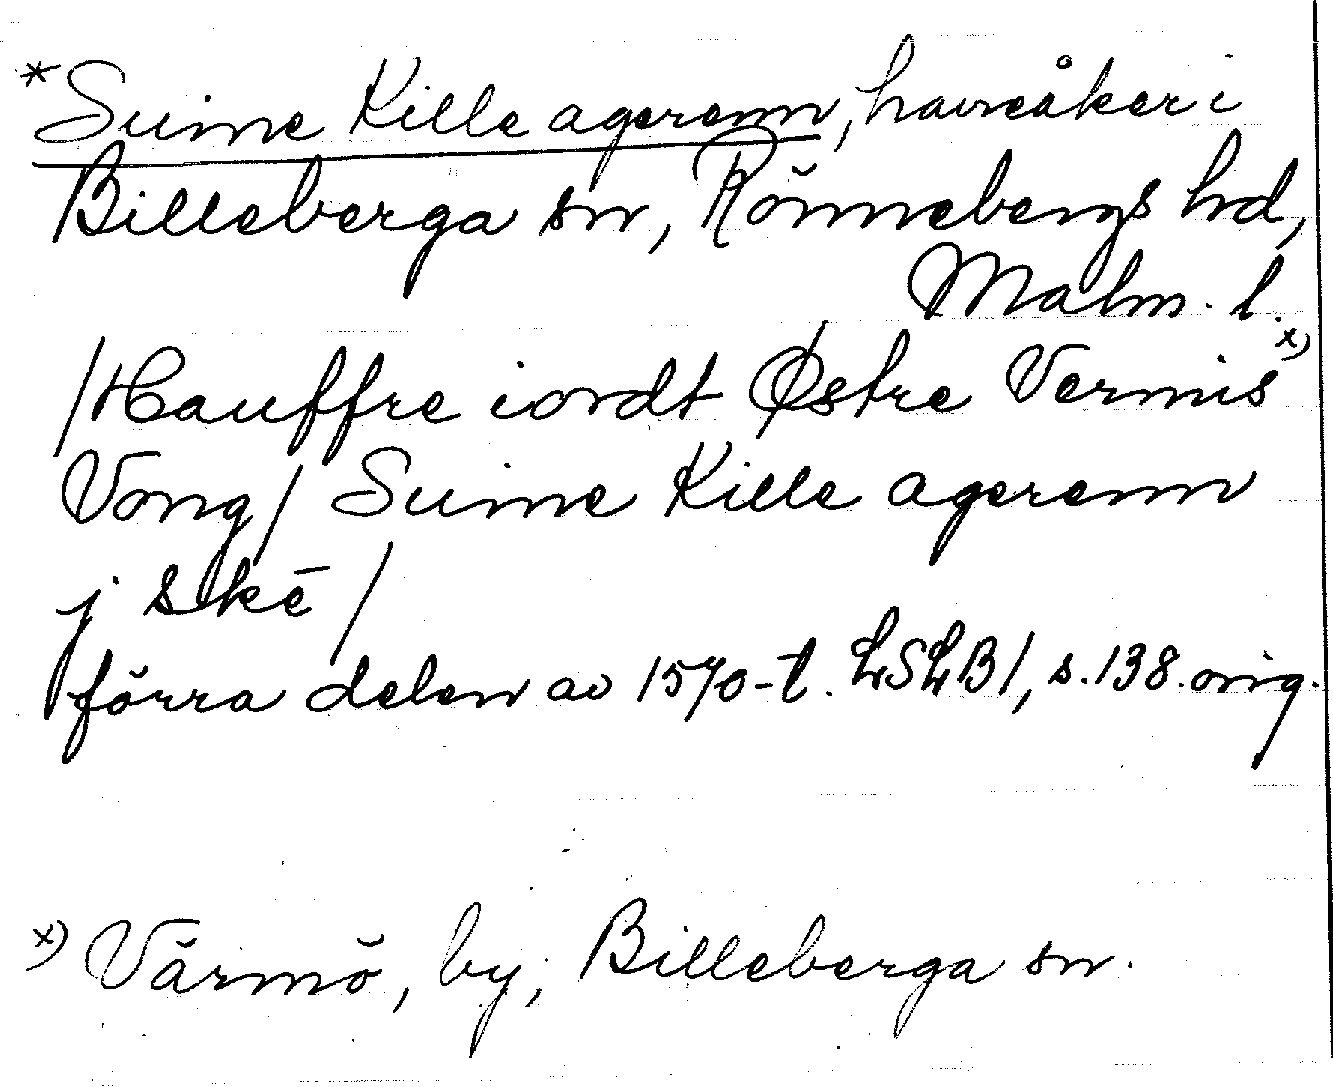 *Suine Kille agerenn, havreåker i
Billeberga sn, Rönnebergs hd,
Malm. l.
/Hauffre iordt Østre Vermis x)
Vong/ Suine Kille agerenn
j skē /
förra delen av 1570-t. LSLB1, s. 138. orig.
x) Värmö, by, Billeberga sn.